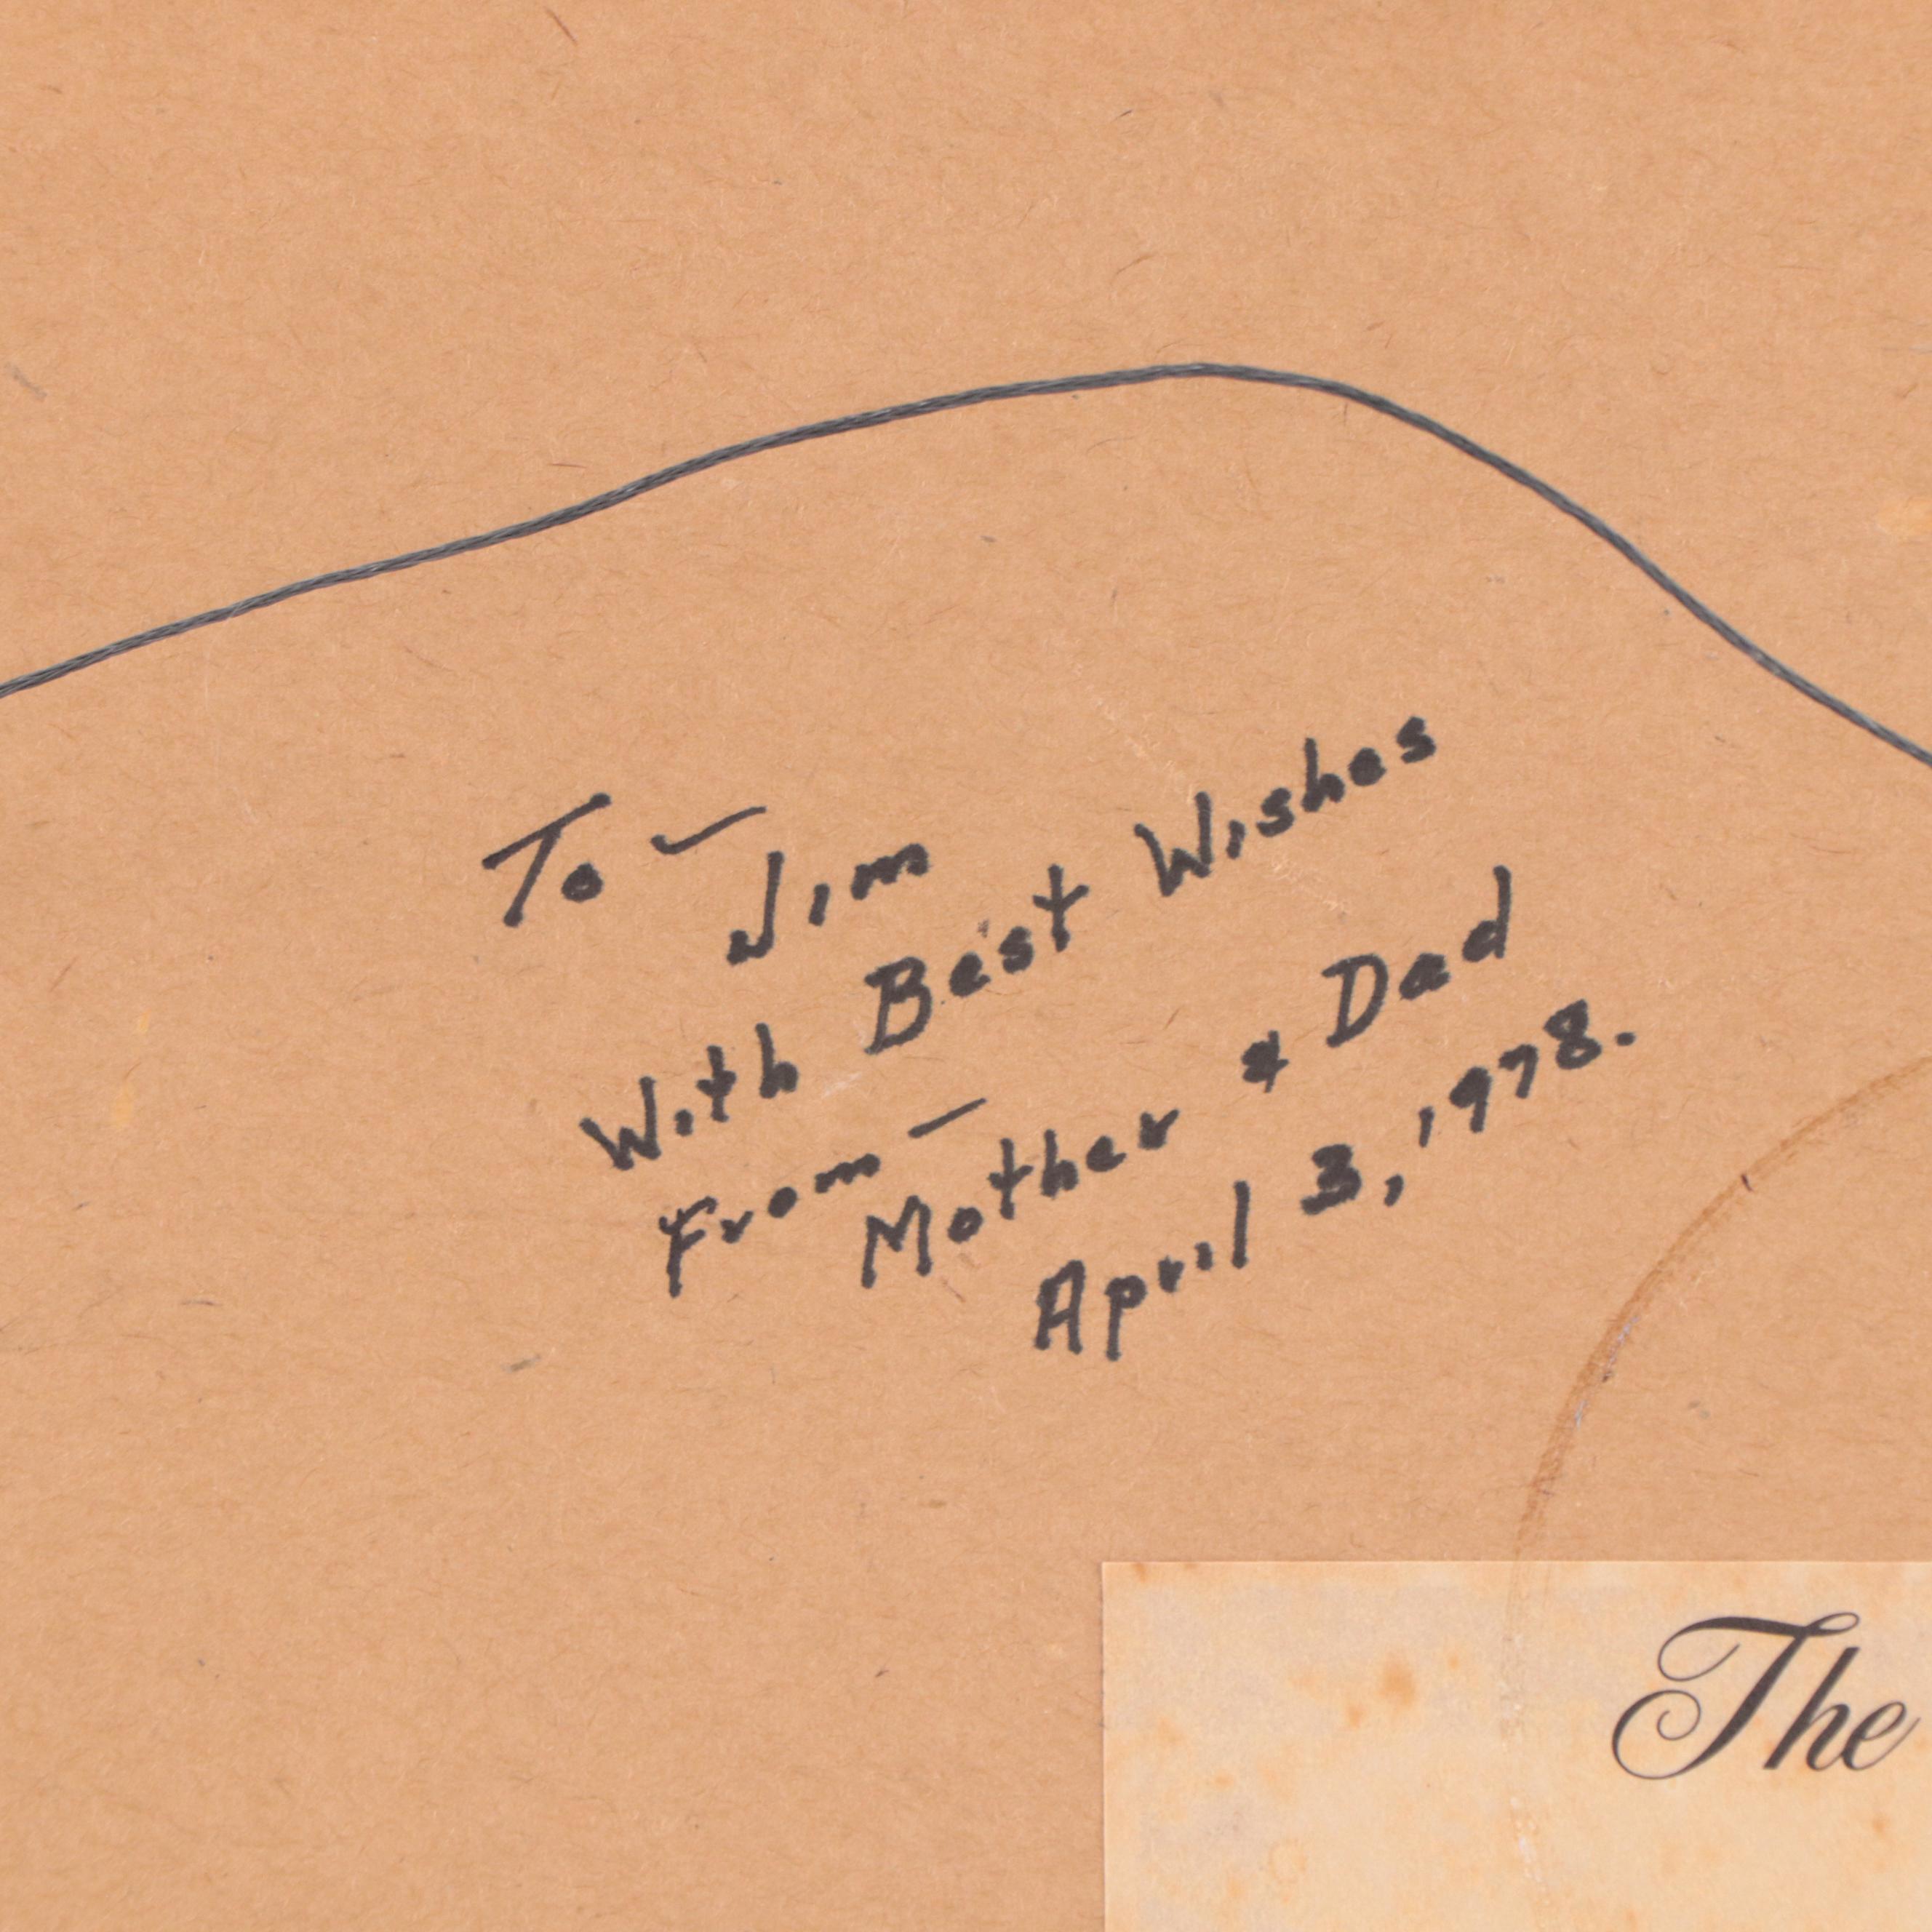 To —
Jim
With Best Wishes
From —
Mother & Dad
April 3, 1978.
The